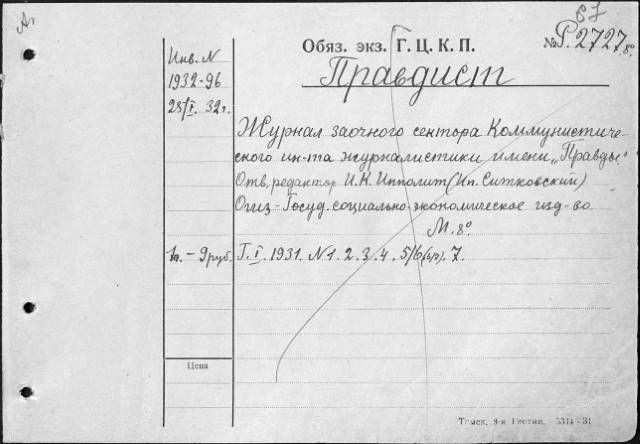 А
87
Обяз. экз. Г. Ц. К. П.
№ Р.2727 8º
Инв. N
1932-96
25/I. 32 г.
Правдист
Журнал заочного сектора Коммунистиче-
ского ин-та журналистики имени „Правды“
Отв. редактор И.К. Ипполит (Ип. Ситковский)
Огиз-Госуд. социально-экономическое изд-во
М. 8º
1 г. – 9 руб.
Г. I. 1931. N 1. 2. 3. 4. 5/6 (бр). 7.
Цена
Томск. 3-я Гостип. 5314-31